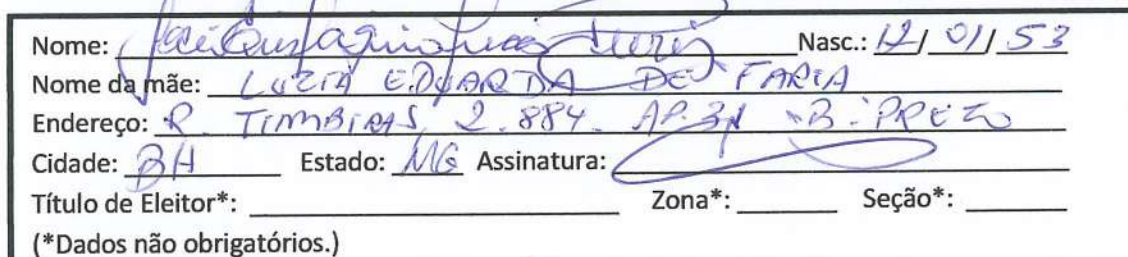 Nome: José Eustáquio Nasc.: 12/01/53
Nome da mãe: LUZIA EDUARDA DE FARIA
Endereço: R. TIMBIRAS 2.884. AP. - B. PRETO
Cidade: BH Estado: MG Assinatura:
Título de Eleitor*: Zona*: Seção*:
(*Dados não obrigatórios.)